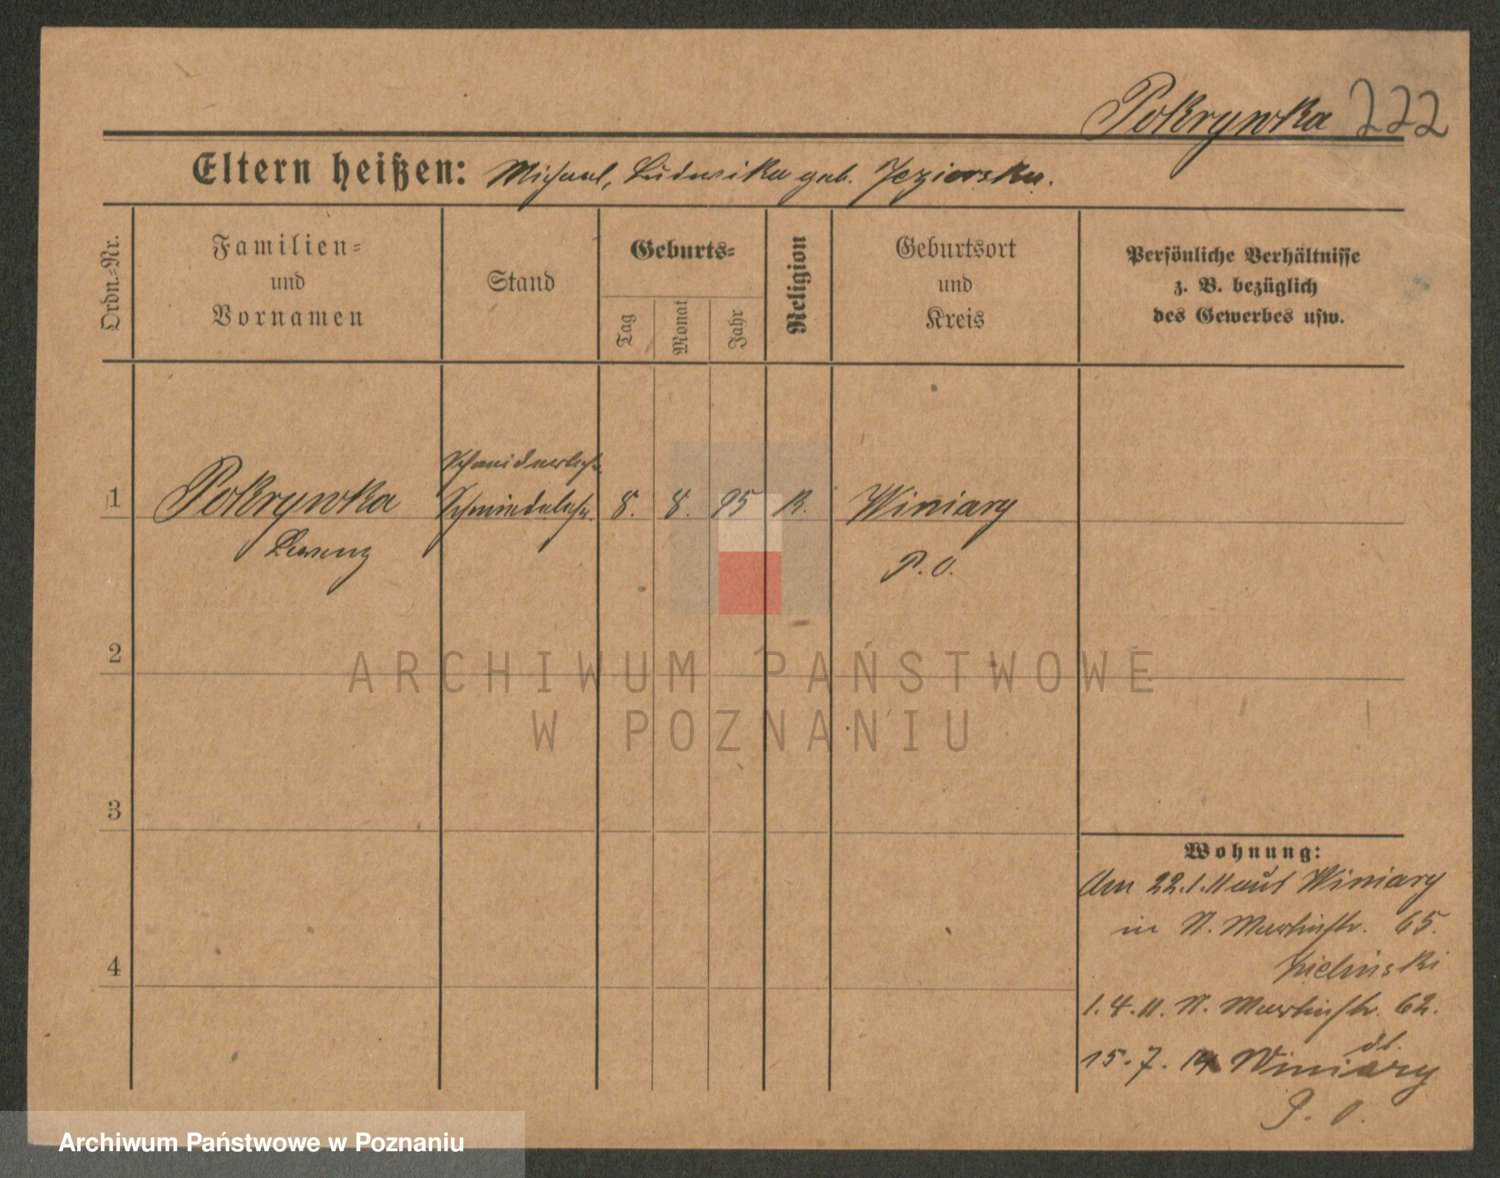 Pokrywka 222
Eltern heißen: Michael, Ludwika geb. Jeziorska.
Ordn.-Nr.
Familien-
und
Vornamen
Stand
Geburts-
Tag
Monat
Jahr
Religion
Geburtsort
und
Kreis
Persönliche Verhältnisse
z. B. bezüglich
des Gewerbes usw.
Schneiderlehrl.
1 Pokrywka Schmiedelehrl. 8. 8. 95 K. Winiary
Lorenz
P. O.
2
ARCHIWUM PAŃSTWOWE
W POZNANIU
3
Wohnung:
Am 22.1.11 aus Winiary
in St. Martinstr. 65.
Zielinski
4
1.4.11. St. Martinstr. 62.
db.
15.7.14 Winiary
P. O.
Archiwum Państwowe w Poznaniu